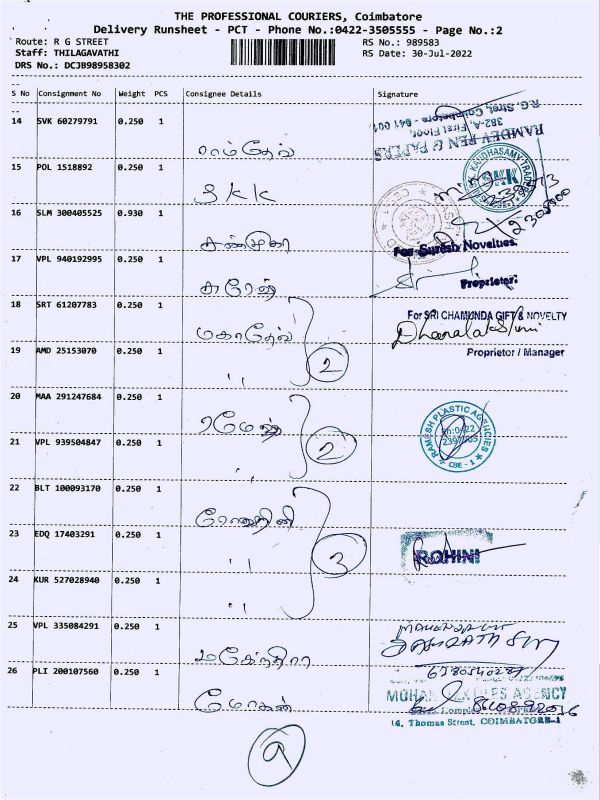 THE PROFESSIONAL COURIERS, Coimbatore
Delivery Runsheet - PCT - Phone No.:0422-3505555 - Page No.:2
Route: R G STREET RS No.: 989583
Staff: THILAGAVATHI RS Date: 30-Jul-2022
DRS No.: DCJB98958302
S No Consignment No Weight PCS Consignee Details Signature
14 SVK 60279791 0.250 1 ராம்தேவ்
RAMDEV PEN & PAPERS
382-A, First Floor,
R.G. Street, Coimbatore - 641 001
15 POL 1518892 0.250 1 SKK
KANDHASAMY
SKK
16 SLM 300405525 0.930 1 சண்முகா
For Suresh Novelties
17 VPL 940192995 0.250 1 சுரேஷ்
Proprietor
18 SRT 61207783 0.250 1 மகாதேவ்
For SRI CHAMUNDA GIFT & NOVELTY
Dhanalakshmi
19 AMD 25153070 0.250 1 ,, 2
Proprietor / Manager
20 MAA 291247684 0.250 1 ரமேஷ்
RAMESH PLASTIC AGENCIES
CBE - 1
21 VPL 939504847 0.250 1 ,, 2
22 BLT 100093170 0.250 1 ரோஹினி
23 EDQ 17403291 0.250 1 ,, 3
ROHINI
24 KUR 527028940 0.250 1 ,,
25 VPL 335084291 0.250 1 மகேந்திரா
26 PLI 200107560 0.250 1 மோகன்
AGENCY
14, Thomas Street, COIMBATORE-1
9